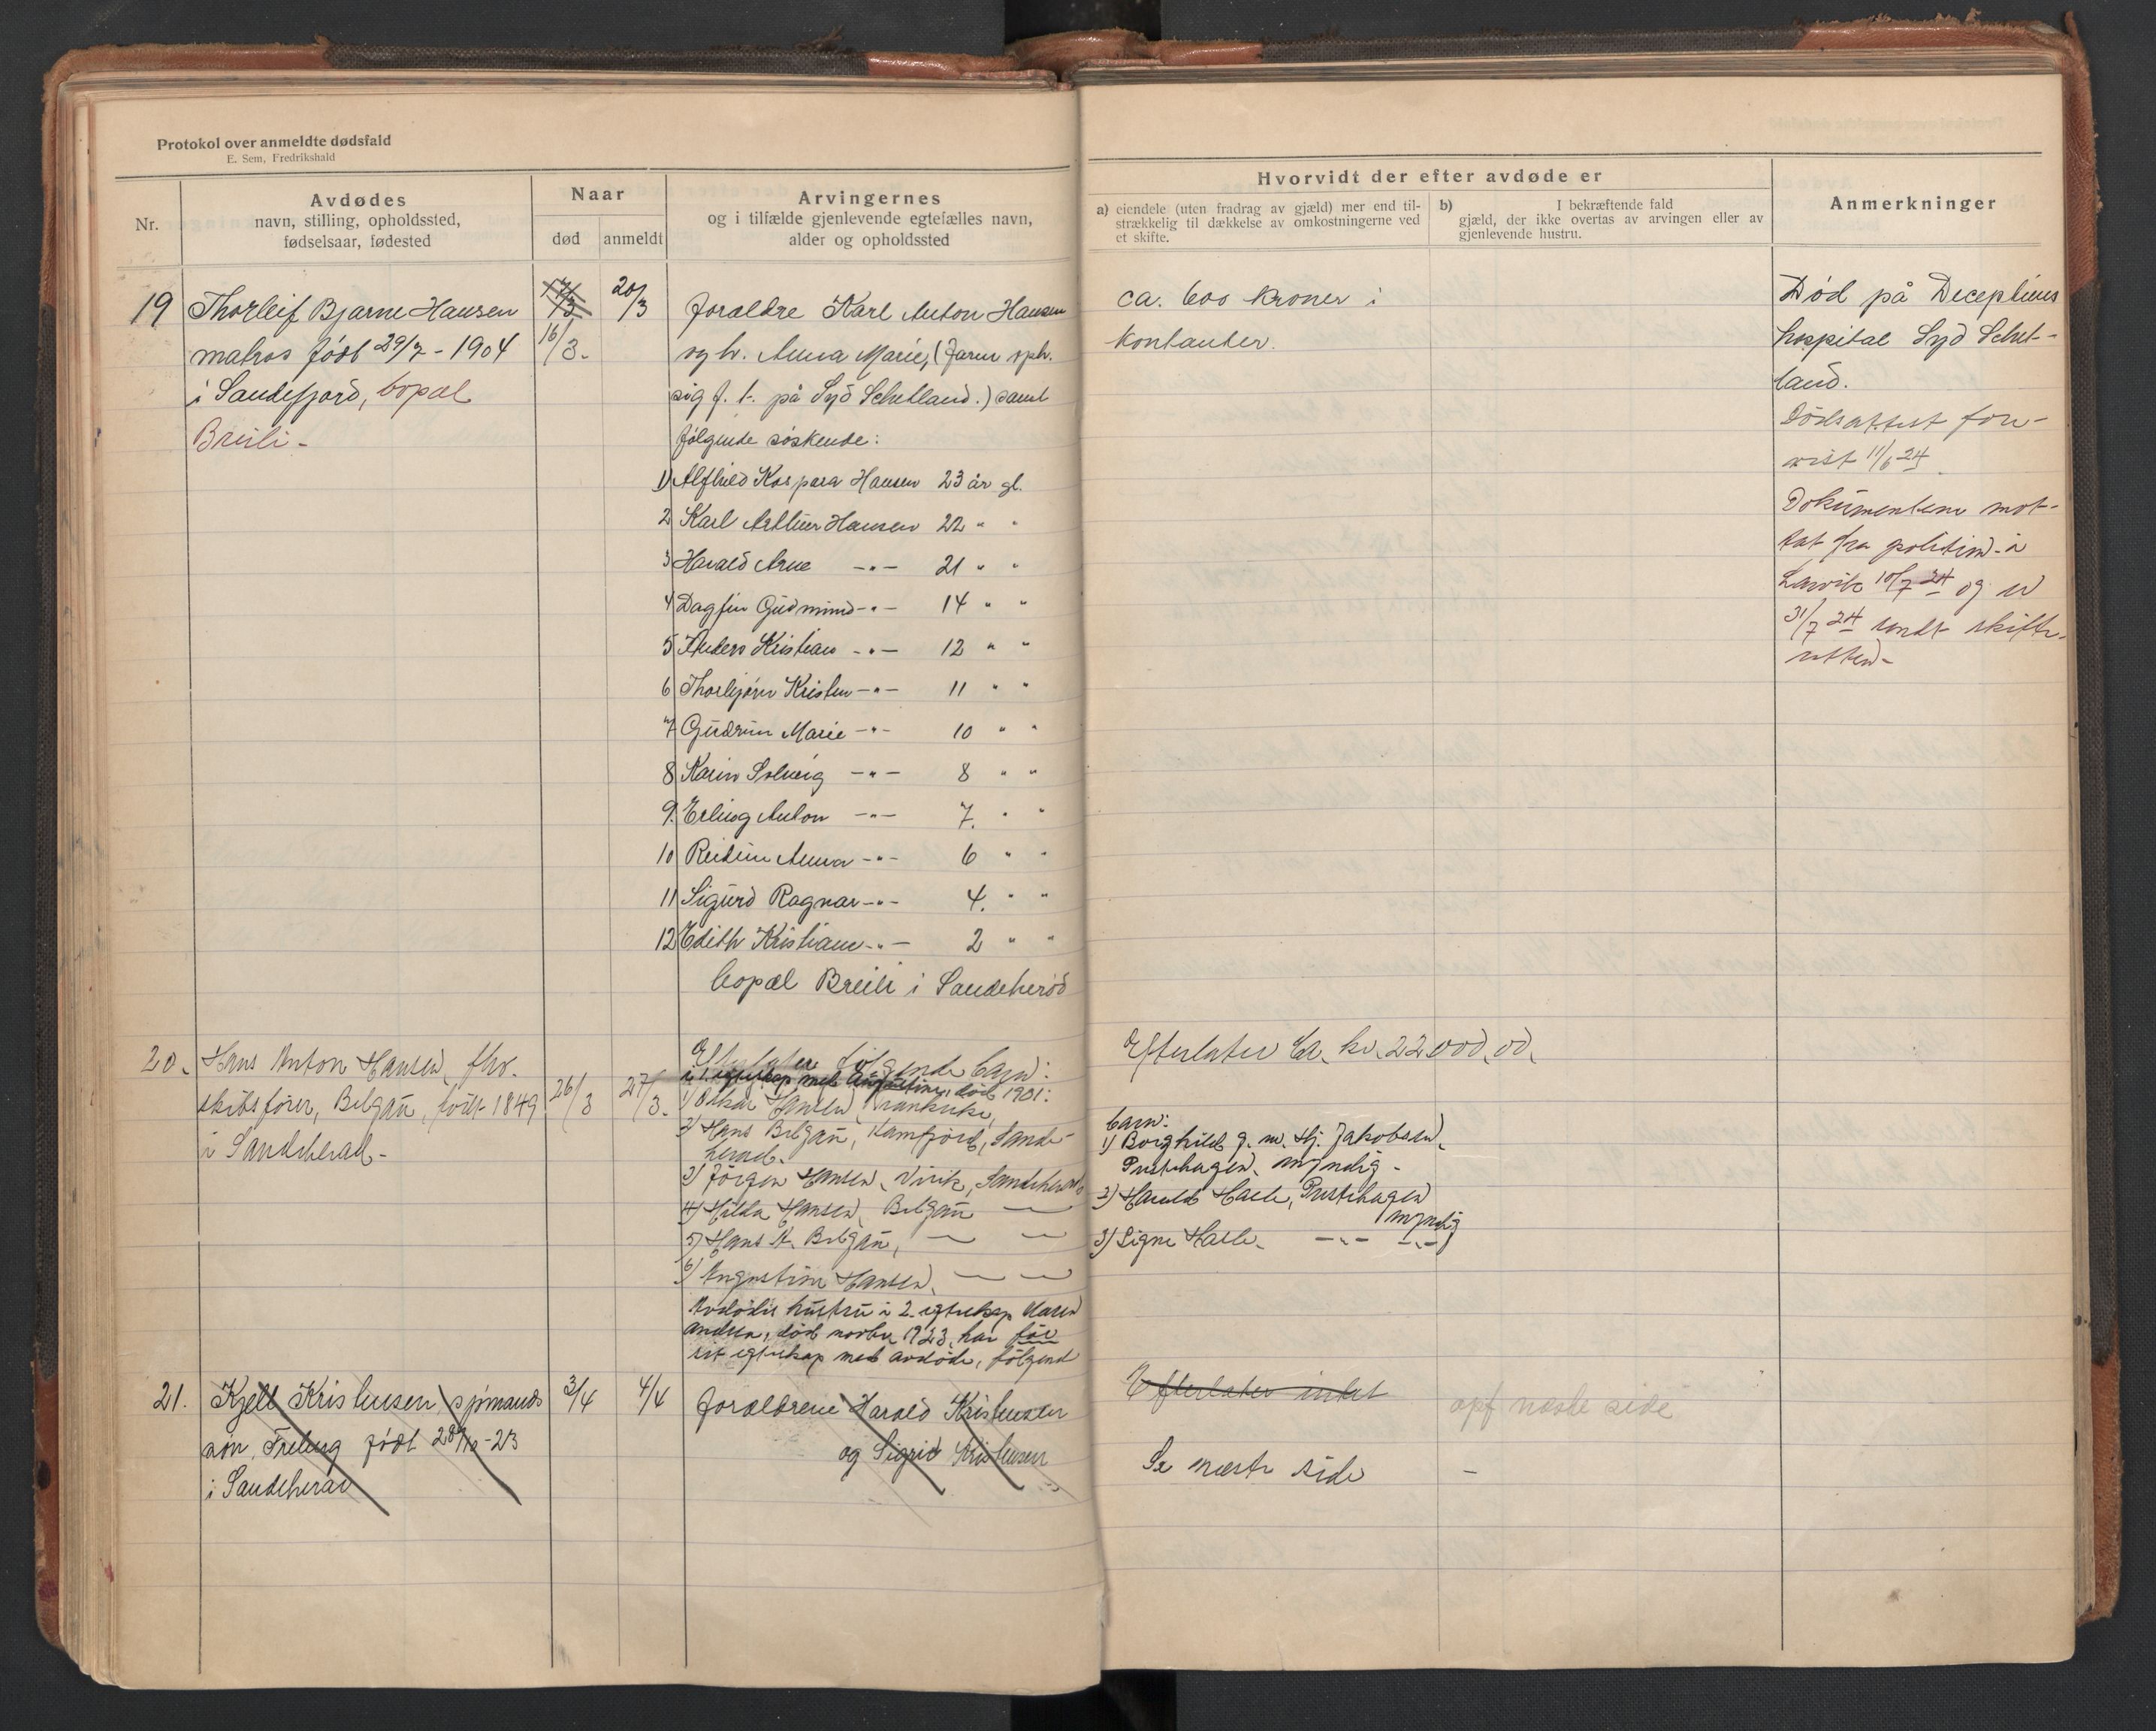 Protokol over anmeldte dødsfald
E. Sem, Fredrikshald
Nr.
Avdødes
navn, stilling, opholdssted,
fødselsaar, fødested
Naar
død
anmeldt
Arvingernes
og i tilfælde gjenlevende egtefælles navn,
alder og opholdssted
19
Thorleif Bjarne Hansen
matros født 29/7 - 1904
i Sandefjord, bopæl
Breili -
17/3
16/3.
20/3
foreldre Karl Anton Hansen
og h. Anna Marie, (faren oph.
sig f. t. på Syd Schetland.) samt
følgende søskende:
1) Alfhild Kaspara Hansen 23 år gl.
2 Karl Arthur Hansen 22 " "
3 Harald Arne -"- 21 " "
4 Dagfin Gudmund -"- 14 " "
5 Anders Kristian -"- 12 " "
6 Thorbjørn Kristen -"- 11 " "
7 Gudrun Marie -"- 10 " "
8 Karin Solveig -"- 8 " "
9. Erling Anton -"- 7. " "
10 Reidun Anna -"- 6 " "
11 Sigurd Ragnar -"- 4. " "
12 Edith Kristiane -"- 2 " "
bopæl Breili i Sandeherød
20.
Hans Anton Hansen, fhv.
skibsfører, Bøgaü, født 1849
i Sandeherad -
26/3
27/3.
Efterlater følgende barn:
i 1. egteskap med Augustine, død 1901:
1) Oskar Hansen,
2) Hans Bøgaü, Kamfjord, Sande-
herad.
3) Jørgen Hansen, Virik, Sandeherad
4) Hilda Hansen, Bøgaü —
5) Hans A. Bøgaü, — —
6) Augustine Hansen, — —
Avdødes hustru i 2. egteskap Karen
Andrea, død novbr 1923, har før
sit egteskap med avdøde, følgend
21.
Kjell Kristensen, sjømands
søn, Freberg født 28/12 - 23
i Sandeherad
3/4
4/4
foreldrene Harald Kristensen
og Sigrid Kristensen
Hvorvidt der efter avdøde er
a) eiendele (uten fradrag av gjæld) mer end til-
strækkelig til dækkelse av omkostningerne ved
et skifte.
b) I bekræftende fald
gjæld, der ikke overtas av arvingen eller av
gjenlevende hustru.
Anmerkninger
ca. 600 kroner i
kontanter.
Død på Deceptions
hospital Syd Schet-
land.
Dødsattest fore-
vist 11/6 24.
Dokumentene mot-
tat fra politim. i
Larvik 10/7 24 og er
31/7 24 sendt skifte-
retten -
Efterlater ca. kr. 22000,00.
barn:
1) Borghild g. m. Hj. Jakobsen,
Prestehagen, myndig -
2) Harald Hasle, Prestehagen
myndig
3) Signe Hasle -"- -"-
Efterlater intet
opf næste side
Se næste side -